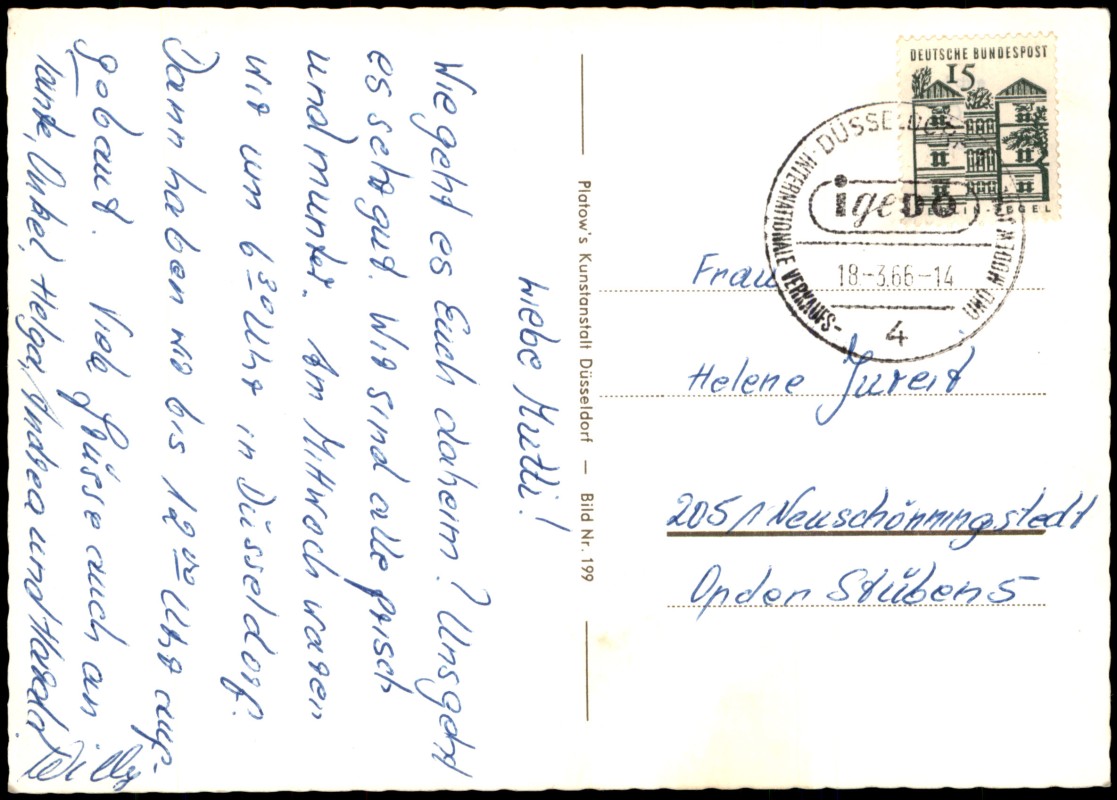 Liebe Mutti!
Wie geht es Euch daheim? Uns geht
es sehr gut. Wir sind alle frisch
und munter. Am Mittwoch waren
wir um 6³⁰ Uhr in Düsseldorf.
Dann haben wir bis 12⁰⁰ Uhr auf-
gebaut. Viele Grüsse auch an
Tante, Onkel, Helga, Andrea und Harald.
Willy
Platow's Kunstanstalt Düsseldorf — Bild Nr. 199
DEUTSCHE BUNDESPOST
15
BERLIN-TEGEL
DÜSSELDORF
INTERNATIONALE VERKAUFS-
UND MODEN
igedo
18.-3.66-14
4
Frau
Helene Jureit
2051 Neuschönningstedt
Op der Stüben 5